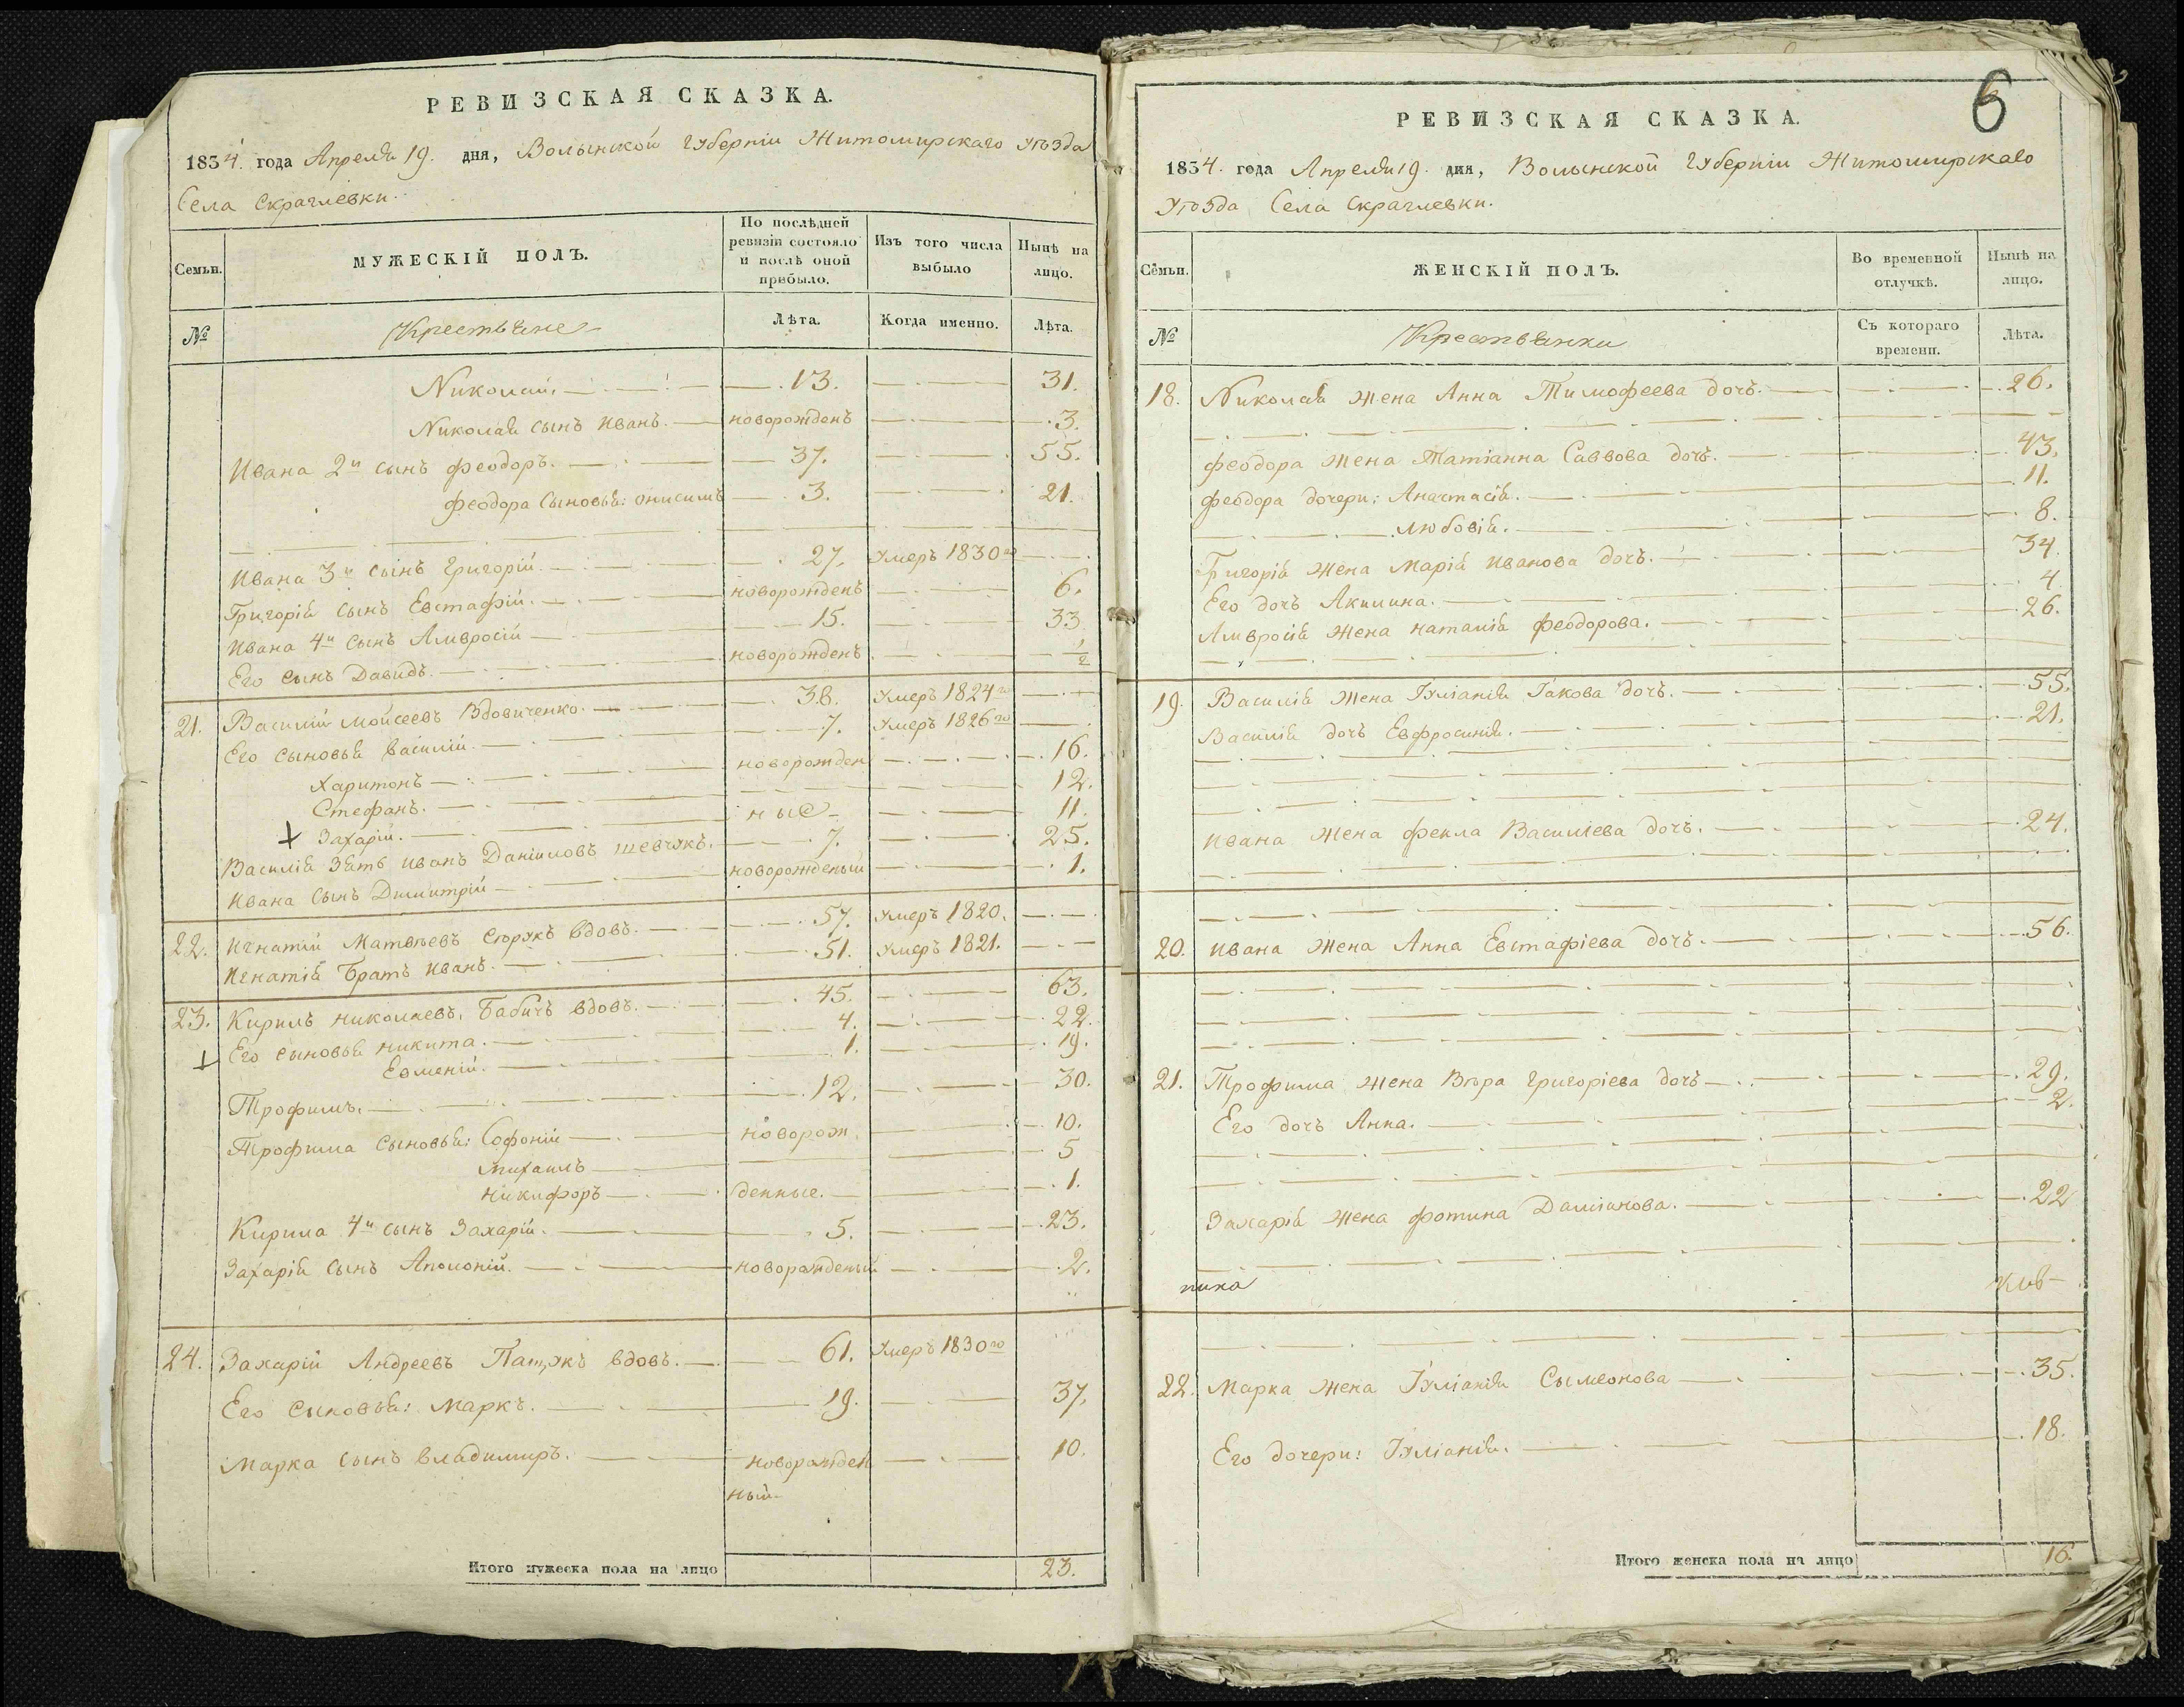 РЕВИЗСКАЯ СКАЗКА.
1834. года Апреля 19. дня, Волынской Губерніи Житомирскаго уѣзда
Села Скраглевки.
Семьи.
МУЖЕСКІЙ ПОЛЪ.
По послѣдней ревизіи состояло и послѣ оной прибыло.
Изъ того числа выбыло
Нынѣ на лицо.
№
Крестьяне
Лѣта.
Когда именно.
Лѣта.
Николай 13. 31.
Николая сынъ Иванъ. новорожденъ 3.
Ивана 2й сынъ Феодоръ. 37. 55.
Феодора Сыновья: Онисимъ 3. 21.
Ивана 3й сынъ Григорій. 27. Умеръ 1830го
Григорія сынъ Евстафій. новорожденъ 6.
Ивана 4й сынъ Амвросій 15. 33.
Его сынъ Давидъ. новорожденъ 1/2
21. Василій Мойсеевъ Вдовиченко. 38. Умеръ 1824го
Его сыновья Василій 7. Умеръ 1826го
Харитонъ новорожден 16.
Стефанъ. 12.
Захарій. ные 11.
Василія Зять Иванъ Даніиловъ Шевчукъ. 7. 25.
Ивана Сынъ Димитрій новорожденый 1.
22. Игнатій Матвѣевъ вдовъ. 57. Умеръ 1820.
Игнатія Братъ Иванъ. 51. Умеръ 1821.
23. Кирилъ Николаевъ Бабичъ вдовъ. 45. 63.
Его сыновья Никита. 4. 22.
Евменій. 1. 19.
Трофимъ. 12. 30.
Трофима Сыновья: Софоній новорож 10.
Михаилъ 5
Никифоръ денные. 1.
Кирила 4й сынъ Захарій. 5. 23.
Захарія Сынъ Аполоній. новорожденый 2.
24. Захарій Андреевъ Пацукъ вдовъ. 61. Умеръ 1830го
Его Сыновья: Маркъ. 19. 37.
Марка сынъ Владимиръ. новорожден 10.
ный
Итого мужеска пола на лицо 23.
6
РЕВИЗСКАЯ СКАЗКА.
1834. года Апреля 19. дня, Волынской Губерніи Житомирскаго
Уѣзда Села Скраглевки.
Семьи.
ЖЕНСКІЙ ПОЛЪ.
Во временной отлучкѣ.
Нынѣ на лицо.
№
Крестьянки
Съ котораго времени.
Лѣта.
18. Николая жена Анна Тимофеева дочь. 26.
Феодора жена Татіанна Саввова дочь. 43.
Феодора дочери: Анастасія. 11.
Любовія. 8.
Григорія жена Марія Иванова дочь. 34.
Его дочь Акилина. 4.
Амвросія жена Наталія Феодорова. 26.
19. Василія жена Іуліанія Іакова дочь. 55.
Василія дочь Евфросинія. 21.
Ивана жена Фекла Василіева дочь. 24.
20. Ивана жена Анна Евстафіева дочь. 56.
21. Трофима жена Вѣра Григоріева дочь 29.
Его дочь Анна. 2.
Захарія жена Фотина Даміанова. 22
22. Марка жена Іуліанія Сымеонова 35.
Его дочери: Іуліанія. 18.
Итого женска пола на лицо 16.